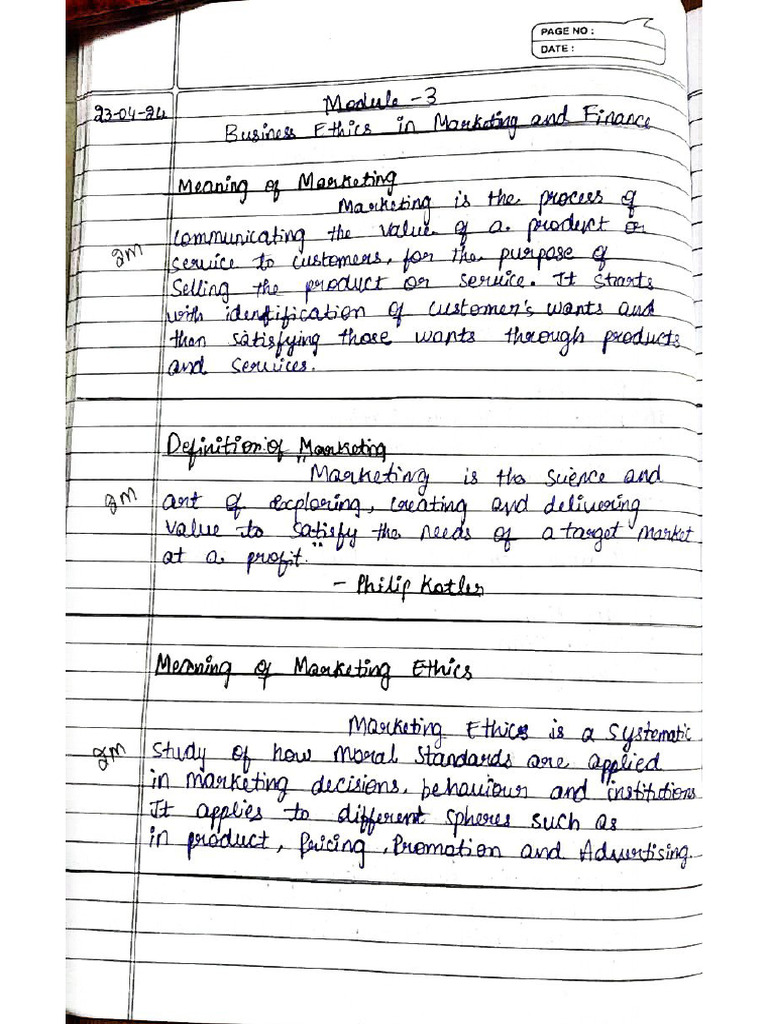 PAGE NO :
DATE :
23-04-24
Module - 3
Business Ethics in Marketing and Finance
Meaning of Marketing
Marketing is the process of
communicating the value of a product or
2m
service to customers, for the purpose of
Selling the product or service. It starts
with identification of customer's wants and
then satisfying those wants through products
and services.
Definition of Marketing
"Marketing is the science and
2m
art of exploring, creating and delivering
value to satisfy the needs of a target market
at a profit."
- Philip Kotler
Meaning of Marketing Ethics
Marketing Ethics is a Systematic
2m
Study of how Moral Standards are applied
in marketing decisions, behaviour and institutions
It applies to different spheres such as
in product, Pricing, Promotion and Advertising.